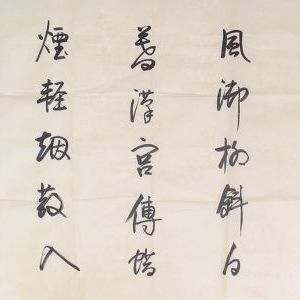 風御柳斜日
暮漢宮傳蜡
燭輕烟散入